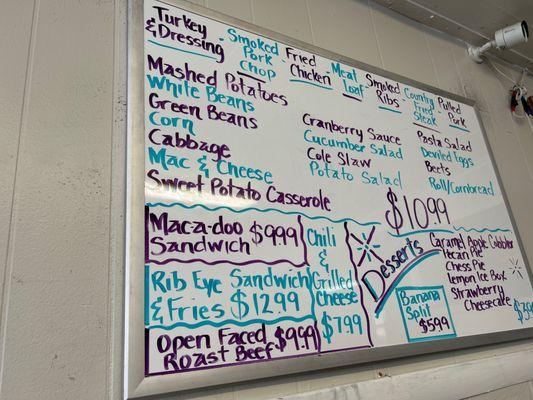 Turkey & Dressing
Smoked Pork Chop
Fried Chicken
Meat Loaf
Smoked Ribs
Country Fried Steak
Pulled Pork
Mashed Potatoes
White Beans
Green Beans
Corn
Cabbage
Mac & Cheese
Sweet Potato Casserole
Cranberry Sauce
Cucumber Salad
Cole Slaw
Potato Salad
Pasta Salad
Deviled Eggs
Beets
Roll/Cornbread
$10.99
Mac-a-doo
Sandwich $9.99
Rib Eye Sandwich
& Fries $12.99
Open Faced
Roast Beef $9.99
Chili
&
Grilled
Cheese
$7.99
Desserts
Caramel Apple Cobbler
Pecan Pie
Chess Pie
Lemon Ice Box
Strawberry
Cheesecake
Banana
Split
$5.99